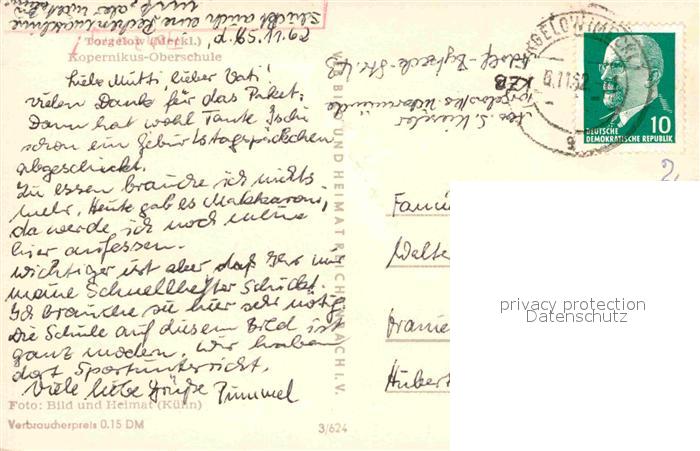 Schickt auch eine Rechenmaschine
mit, aber nicht
Torgelow (Meckl.)
Kopernikus-Oberschule
d. 5.11.62
Liebe Mutti, lieber Vati!
vielen Dank für das Paket.
Dann hat wohl Tante Ischi
schon ein Geburtstagspäckchen
abgeschickt.
Zu essen brauche ich nichts
mehr. Heute gab es Makkaroni,
da werde ich noch meine
hier aufessen.
wichtiger ist aber daß Ihr mir
meine Schnellhefter schickt.
Ich brauche sie hier sehr nötig
die Schule auf diesem Bild ist
ganz modern, wir haben
dort Sportunterricht.
Viele liebe Grüße Pummel
Foto: Bild und Heimat (Kühn)
Verbraucherpreis 0.15 DM
3/624
VEB BILD UND HEIMAT REICHENBACH I. V.
KZB
TORGELOW (MECKL)
.11.62
DEUTSCHE
DEMOKRATISCHE REPUBLIK
10
a
2,
Fami
Walter
Oranie
Hubert
privacy protection
Datenschutz